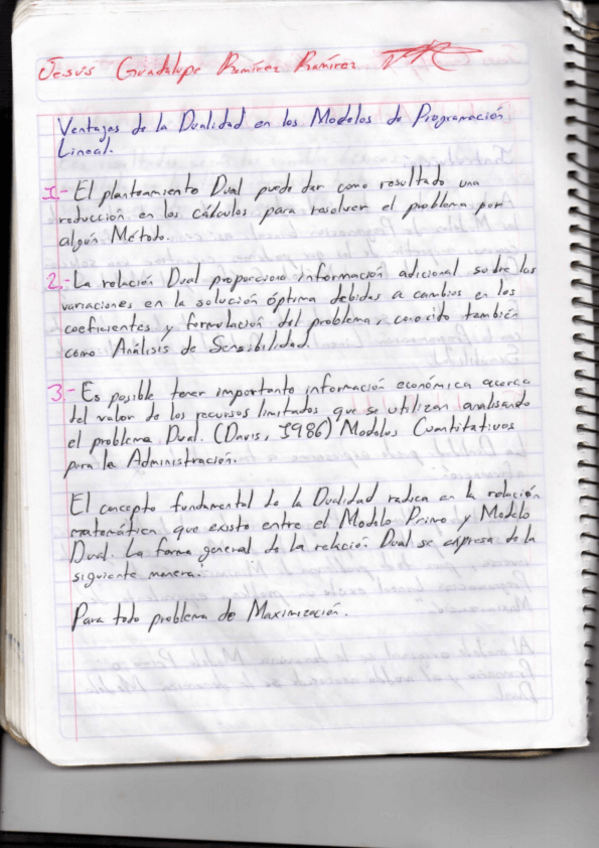 Jesús Guadalupe Ramírez Ramírez
Ventajas de la Dualidad en los Modelos de Programación
Lineal.
1.- El planteamiento Dual puede dar como resultado una
reducción en los cálculos para resolver el problema por
algún Método.
2.- La relación Dual proporciona información adicional sobre las
variaciones en la solución óptima debidas a cambios en los
coeficientes y formulación del problema, conocido también
como Análisis de Sensibilidad.
3.- Es posible tener importante información económica acerca
del valor de los recursos limitados que se utilizan analisando
el problema Dual. (Davis, 1986) Modelos Cuantitativos
para la Administración.
El concepto fundamental de la Dualidad radica en la relación
matemática que existe entre el Modelo Primo y Modelo
Dual. La forma general de la relación Dual se expresa de la
siguiente manera:
Para todo problema de Maximización.